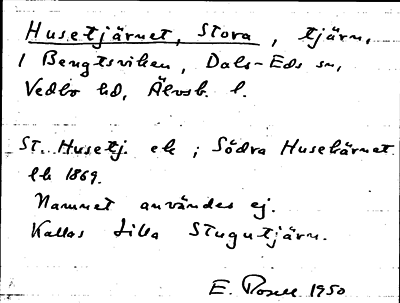 Husetjärnet, Stora, tjärn,
i Bengtsviken, Dals-Eds sn,
Vedbo hd, Älvsb. l.
St. Husetj. ek ; Södra Husekärnet
lk 1869.
Namnet användes ej.
Kallas Lilla Stugutjärn.
E. Rosell 1950